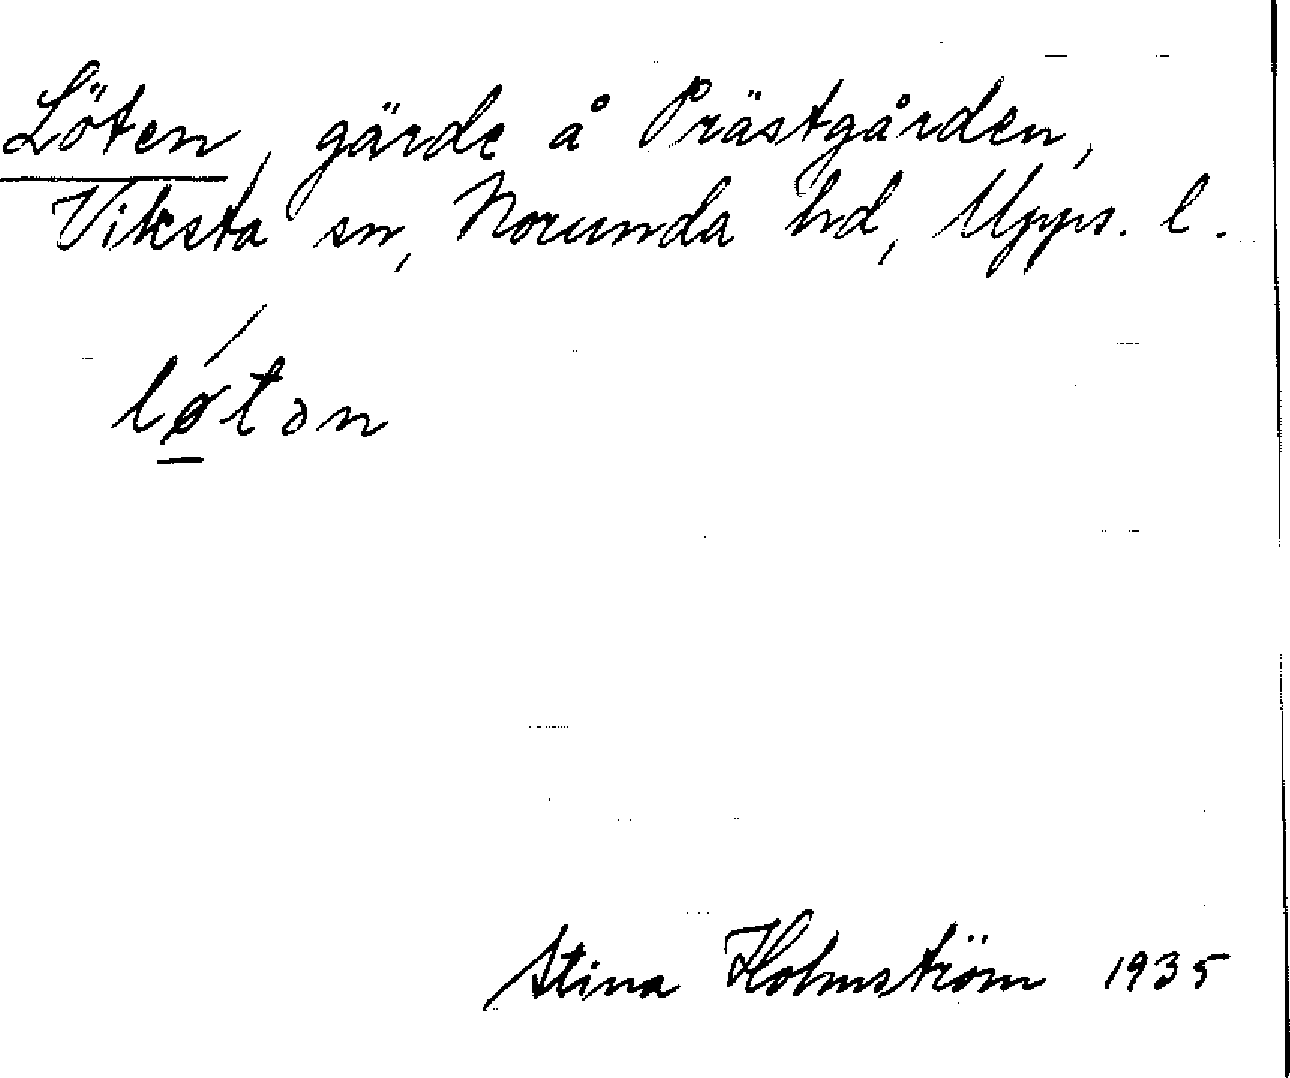 Löten, gärde å Prästgården,
Viksta sn, Norunda hd, Upps. l.
lǿ̱tən
Stina Holmström 1935